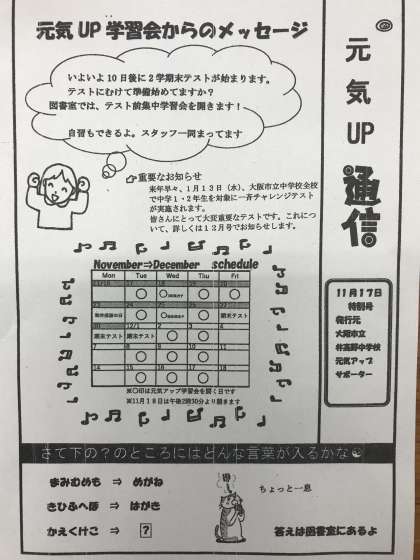 元気UP学習会からのメッセージ
元気UP通信
いよいよ10日後に2学期末テストが始まります。
テストにむけて準備始めてますか?
図書室では、テスト前集中学習会を開きます!
自習もできるよ。スタッフ一同まってます
重要なお知らせ
来年早々、1月13日(水)、大阪市立中学校全校
で中学1・2年生を対象に一斉チャレンジテスト
が実施されます。
皆さんにとって大変重要なテストです。これにつ
いて、詳しくは12月号でお知らせします。
November⇒December schedule
Mon Tue Wed Thu Fri
11/16 17 18 19 20
23 24 25 26 27
期末テスト
30 12/1 2 3 4
期末テスト 期末テスト
7 8 9 10 11
14 15 16 17 18
※○印は元気アップ学習会を開く日です
※11月18日は午後2時30分より開きます
11月17日
特制号
発行元
大阪市立
井高野中学校
元気アップ
サポーター
さて下の?のところにはどんな言葉が入るかな
まみむめも ⇒ めがね
きひふへほ ⇒ はがき
かえくけこ ⇒ ?
ちょっと一息
答えは図書室にあるよ